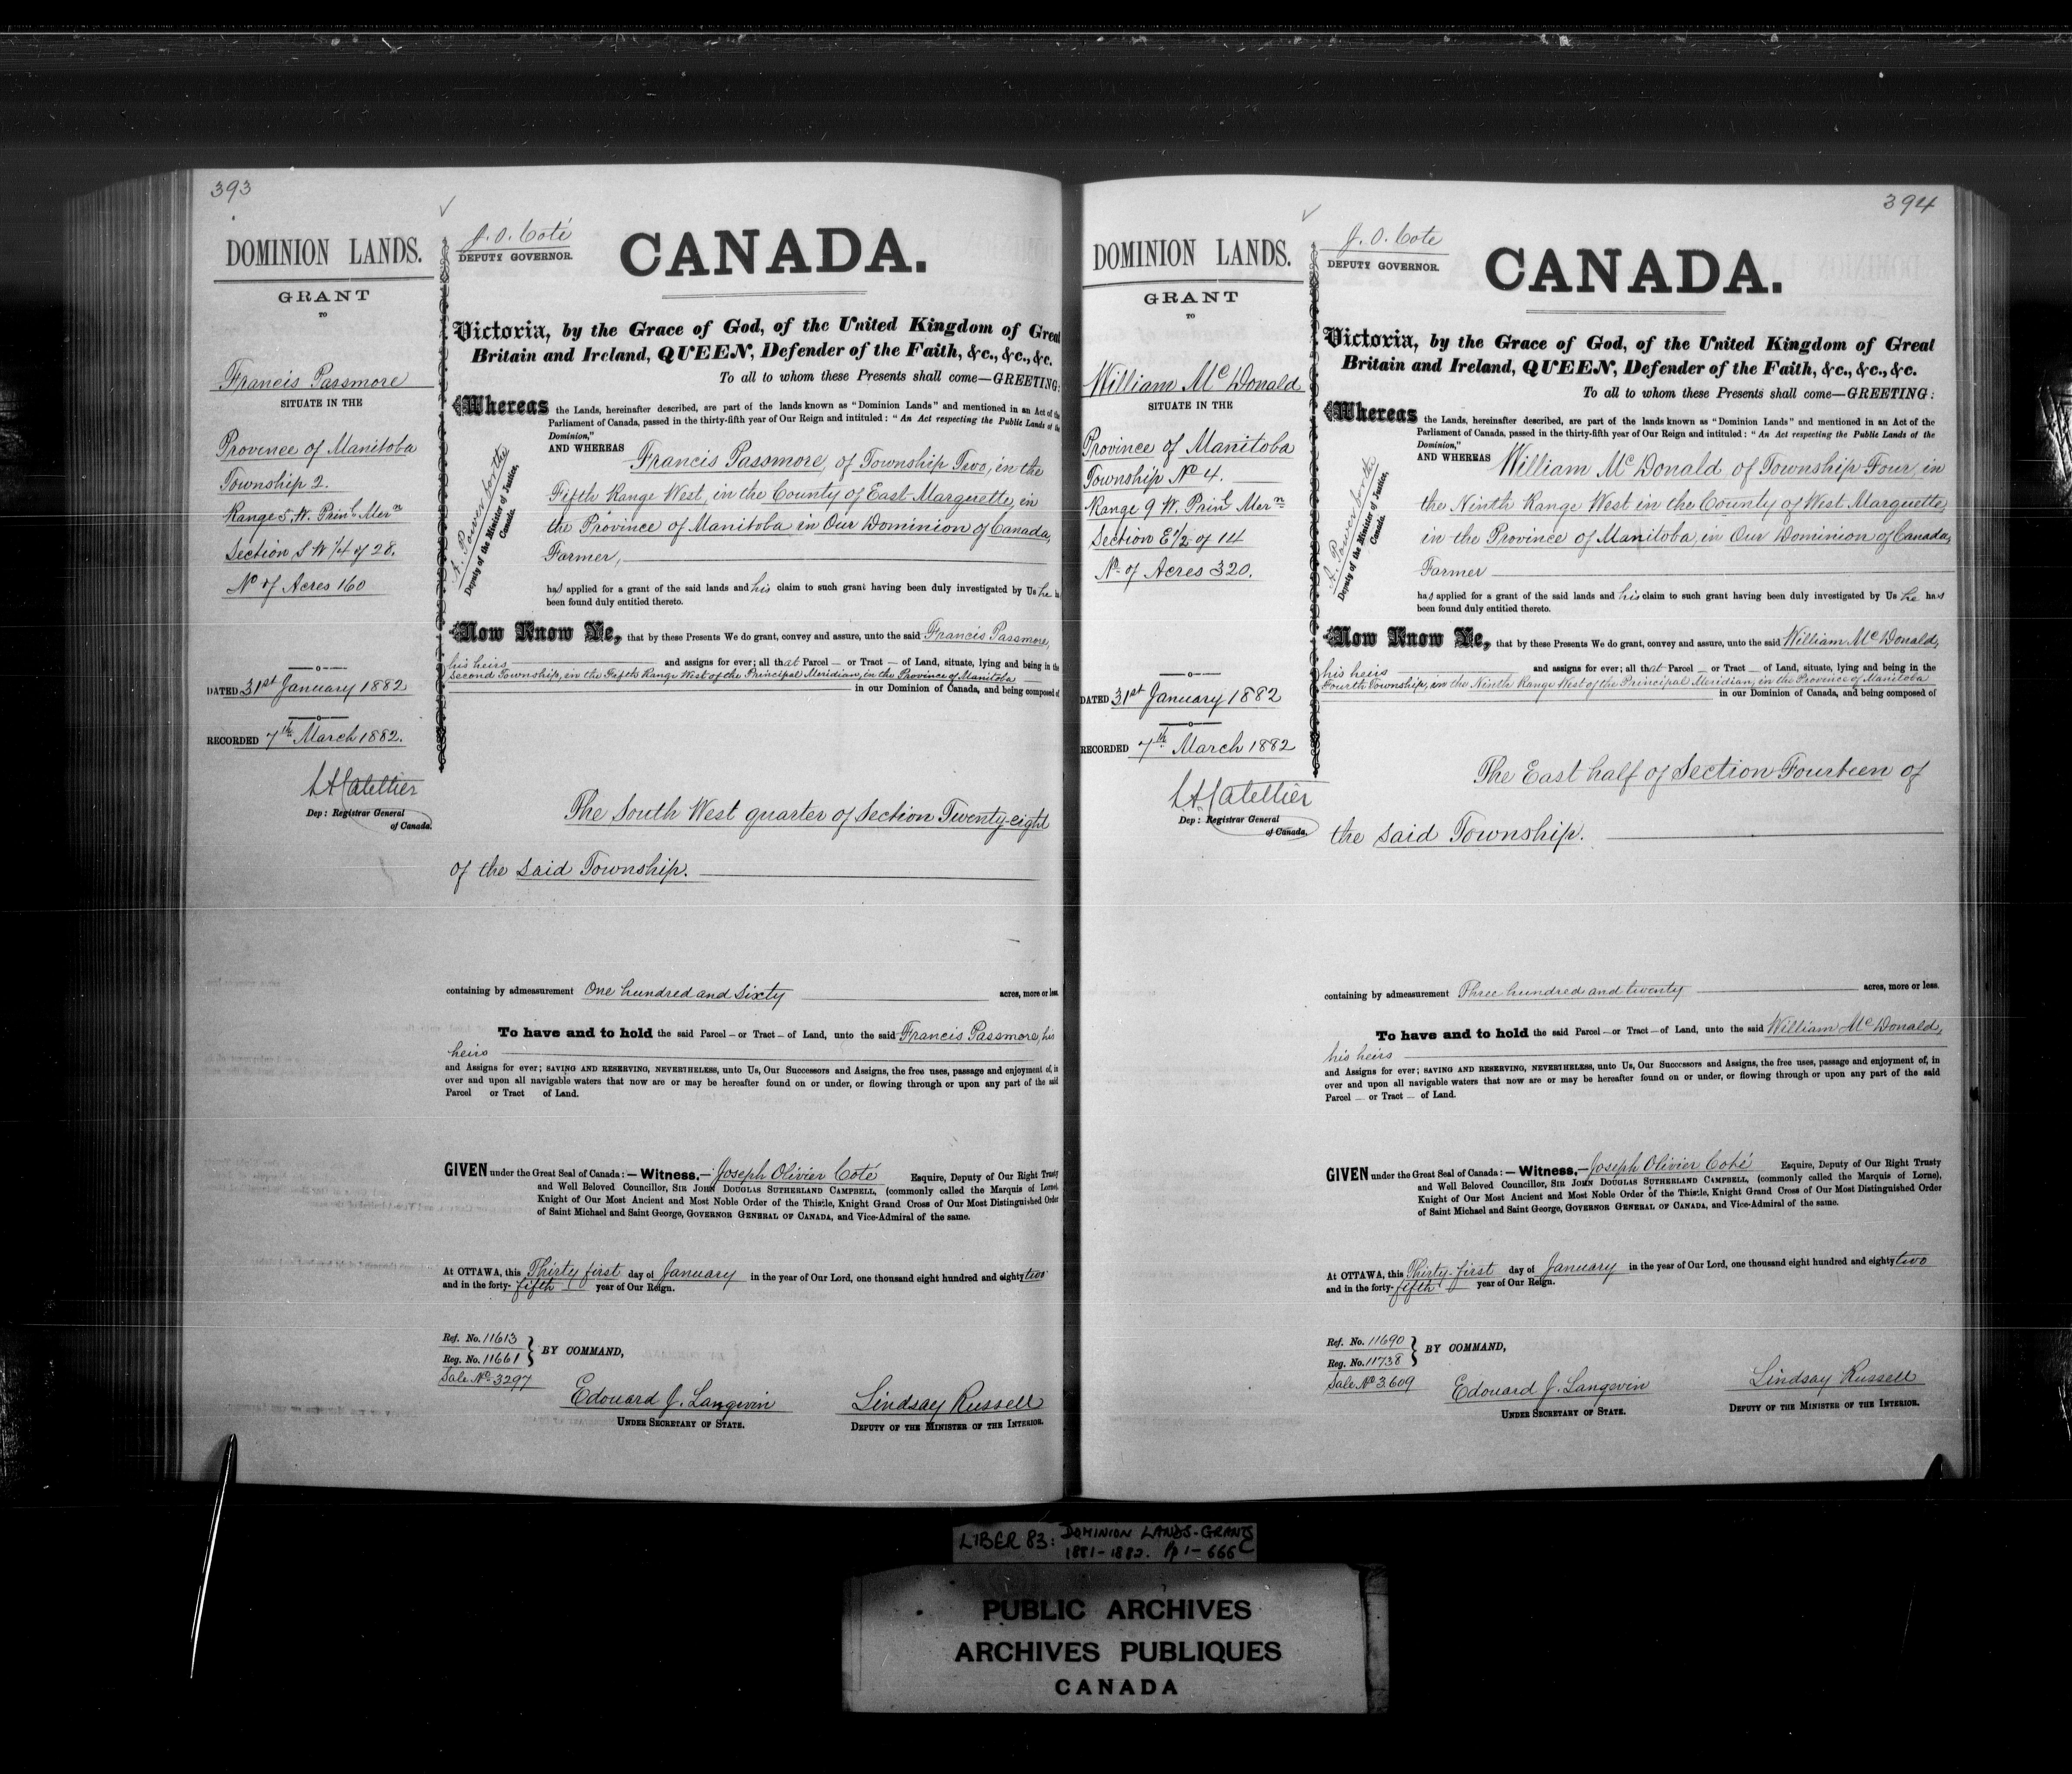 393
DOMINION LANDS.
GRANT
TO
Francis Passmore
SITUATE IN THE
Province of Manitoba
Township 2.
Range 5 W. Prinl Mern
Section S W 1/4 of 28.
No of Acres 160
DATED 31st January 1882
RECORDED 7th March 1882.
Dep: Registrar General
of Canada.
J. O. Coté
DEPUTY GOVERNOR.
CANADA.
A. Power for the
Deputy of the Minister of Justice,
Canada.
Victoria, by the Grace of God, of the United Kingdom of Great
Britain and Ireland, QUEEN, Defender of the Faith, &c., &c., &c.
To all to whom these Presents shall come—GREETING:
Whereas the Lands, hereinafter described, are part of the lands known as "Dominion Lands" and mentioned in an Act of the
Parliament of Canada, passed in the thirty-fifth year of Our Reign and intituled: "An Act respecting the Public Lands of the
Dominion,"
AND WHEREAS Francis Passmore, of Township Two, in the
Fifth Range West, in the County of East Marquette, in
the Province of Manitoba in Our Dominion of Canada,
Farmer,
has applied for a grant of the said lands and his claim to such grant having been duly investigated by Us he ha
been found duly entitled thereto.
Now Know Ye, that by these Presents We do grant, convey and assure, unto the said Francis Passmore,
his heirs and assigns for ever; all that Parcel — or Tract — of Land, situate, lying and being in the
Second Township, in the Fifth Range West of the Principal Meridian, in the Province of Manitoba
in our Dominion of Canada, and being composed of
The South West quarter of Section Twenty-eight
of the said Township.
containing by admeasurement One hundred and Sixty acres, more or less.
To have and to hold the said Parcel — or Tract — of Land, unto the said Francis Passmore, his
heirs
and Assigns for ever; SAVING AND RESERVING, NEVERTHELESS, unto Us, Our Successors and Assigns, the free uses, passage and enjoyment of, in
over and upon all navigable waters that now are or may be hereafter found on or under, or flowing through or upon any part of the said
Parcel or Tract of Land.
GIVEN under the Great Seal of Canada:—Witness,—Joseph Olivier Coté Esquire, Deputy of Our Right Trusty
and Well Beloved Councillor, SIR JOHN DOUGLAS SUTHERLAND CAMPBELL, (commonly called the Marquis of Lorne),
Knight of Our Most Ancient and Most Noble Order of the Thistle, Knight Grand Cross of Our Most Distinguished Order
of Saint Michael and Saint George, GOVERNOR GENERAL OF CANADA, and Vice-Admiral of the same.
At OTTAWA, this Thirty first day of January in the year of Our Lord, one thousand eight hundred and eighty two
and in the forty-fifth year of Our Reign.
Ref. No. 11613
Reg. No. 11661
BY COMMAND,
Sale No 3297
Edouard J. Langevin
UNDER SECRETARY OF STATE.
Lindsay Russell
DEPUTY OF THE MINISTER OF THE INTERIOR.
394
DOMINION LANDS.
GRANT
TO
William McDonald
SITUATE IN THE
Province of Manitoba
Township No 4.
Range 9 W. Prinl Mern
Section E 1/2 of 14
No of Acres 320.
DATED 31st January 1882
RECORDED 7th March 1882
Dep: Registrar General
of Canada.
J. O. Coté
DEPUTY GOVERNOR.
CANADA.
A. Power for the
Deputy of the Minister of Justice,
Canada.
Victoria, by the Grace of God, of the United Kingdom of Great
Britain and Ireland, QUEEN, Defender of the Faith, &c., &c., &c.
To all to whom these Presents shall come—GREETING:
Whereas the Lands, hereinafter described, are part of the lands known as "Dominion Lands" and mentioned in an Act of the
Parliament of Canada, passed in the thirty-fifth year of Our Reign and intituled: "An Act respecting the Public Lands of the
Dominion,"
AND WHEREAS William McDonald of Township Four, in
the Ninth Range West in the County of West Marquette,
in the Province of Manitoba, in Our Dominion of Canada,
Farmer
has applied for a grant of the said lands and his claim to such grant having been duly investigated by Us he has
been found duly entitled thereto.
Now Know Ye, that by these Presents We do grant, convey and assure, unto the said William McDonald,
his heirs and assigns for ever; all that Parcel — or Tract — of Land, situate, lying and being in the
Fourth Township, in the Ninth Range West of the Principal Meridian, in the Province of Manitoba
in our Dominion of Canada, and being composed of
The East half of Section Fourteen of
the said Township.
containing by admeasurement Three hundred and twenty acres, more or less.
To have and to hold the said Parcel — or Tract — of Land, unto the said William McDonald,
his heirs
and Assigns for ever; SAVING AND RESERVING, NEVERTHELESS, unto Us, Our Successors and Assigns, the free uses, passage and enjoyment of, in
over and upon all navigable waters that now are or may be hereafter found on or under, or flowing through or upon any part of the said
Parcel — or Tract — of Land.
GIVEN under the Great Seal of Canada:—Witness,—Joseph Olivier Coté Esquire, Deputy of Our Right Trusty
and Well Beloved Councillor, SIR JOHN DOUGLAS SUTHERLAND CAMPBELL, (commonly called the Marquis of Lorne),
Knight of Our Most Ancient and Most Noble Order of the Thistle, Knight Grand Cross of Our Most Distinguished Order
of Saint Michael and Saint George, GOVERNOR GENERAL OF CANADA, and Vice-Admiral of the same.
At OTTAWA, this Thirty-first day of January in the year of Our Lord, one thousand eight hundred and eighty two
and in the forty-fifth year of Our Reign.
Ref. No. 11690
Reg. No. 11738
BY COMMAND,
Sale No 3609
Edouard J. Langevin
UNDER SECRETARY OF STATE.
Lindsay Russell
DEPUTY OF THE MINISTER OF THE INTERIOR.
LIBER 83: DOMINION LANDS-GRANTS
1881-1882. Pp 1-666
PUBLIC ARCHIVES
ARCHIVES PUBLIQUES
CANADA